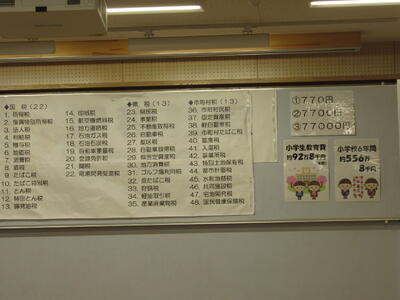 ◆国 税(22)
1. 所得税
2. 復興特別所得税
3. 法人税
4. 相続税
5. 贈与税
6. 地価税
7. 消費税
8. 酒税
9. たばこ税
10. たばこ特別税
11. とん税
12. 特別とん税
13. 揮発油税
14. 印紙税
15. 航空機燃料税
16. 地方道路税
17. 石油ガス税
18. 石油石炭税
19. 自動車重量税
20. 登録免許税
21. 関税
22. 電源開発促進税
◆県 税(13)
23. 県民税
24. 事業税
25. 不動産取得税
26. 自動車税
27. 鉱区税
28. 自動車取得税
29. 固定資産税
30. 地方消費税
31. ゴルフ場利用税
32. 県たばこ税
33. 狩猟税
34. 軽油取引税
35. 産業廃棄物税
◆市町村税(13)
36. 市町村民税
37. 固定資産税
38. 軽自動車税
39. 市町村たばこ税
40. 鉱産税
41. 入湯税
42. 事業所税
43. 特別土地保有税
44. 都市計画税
45. 水利地益税
46. 共同施設税
47. 宅地開発税
48. 国民健康保険税
①770円
②7700円
③77000円
小学生教育費
約92万8千円
小学校6年間
約556万
8千円